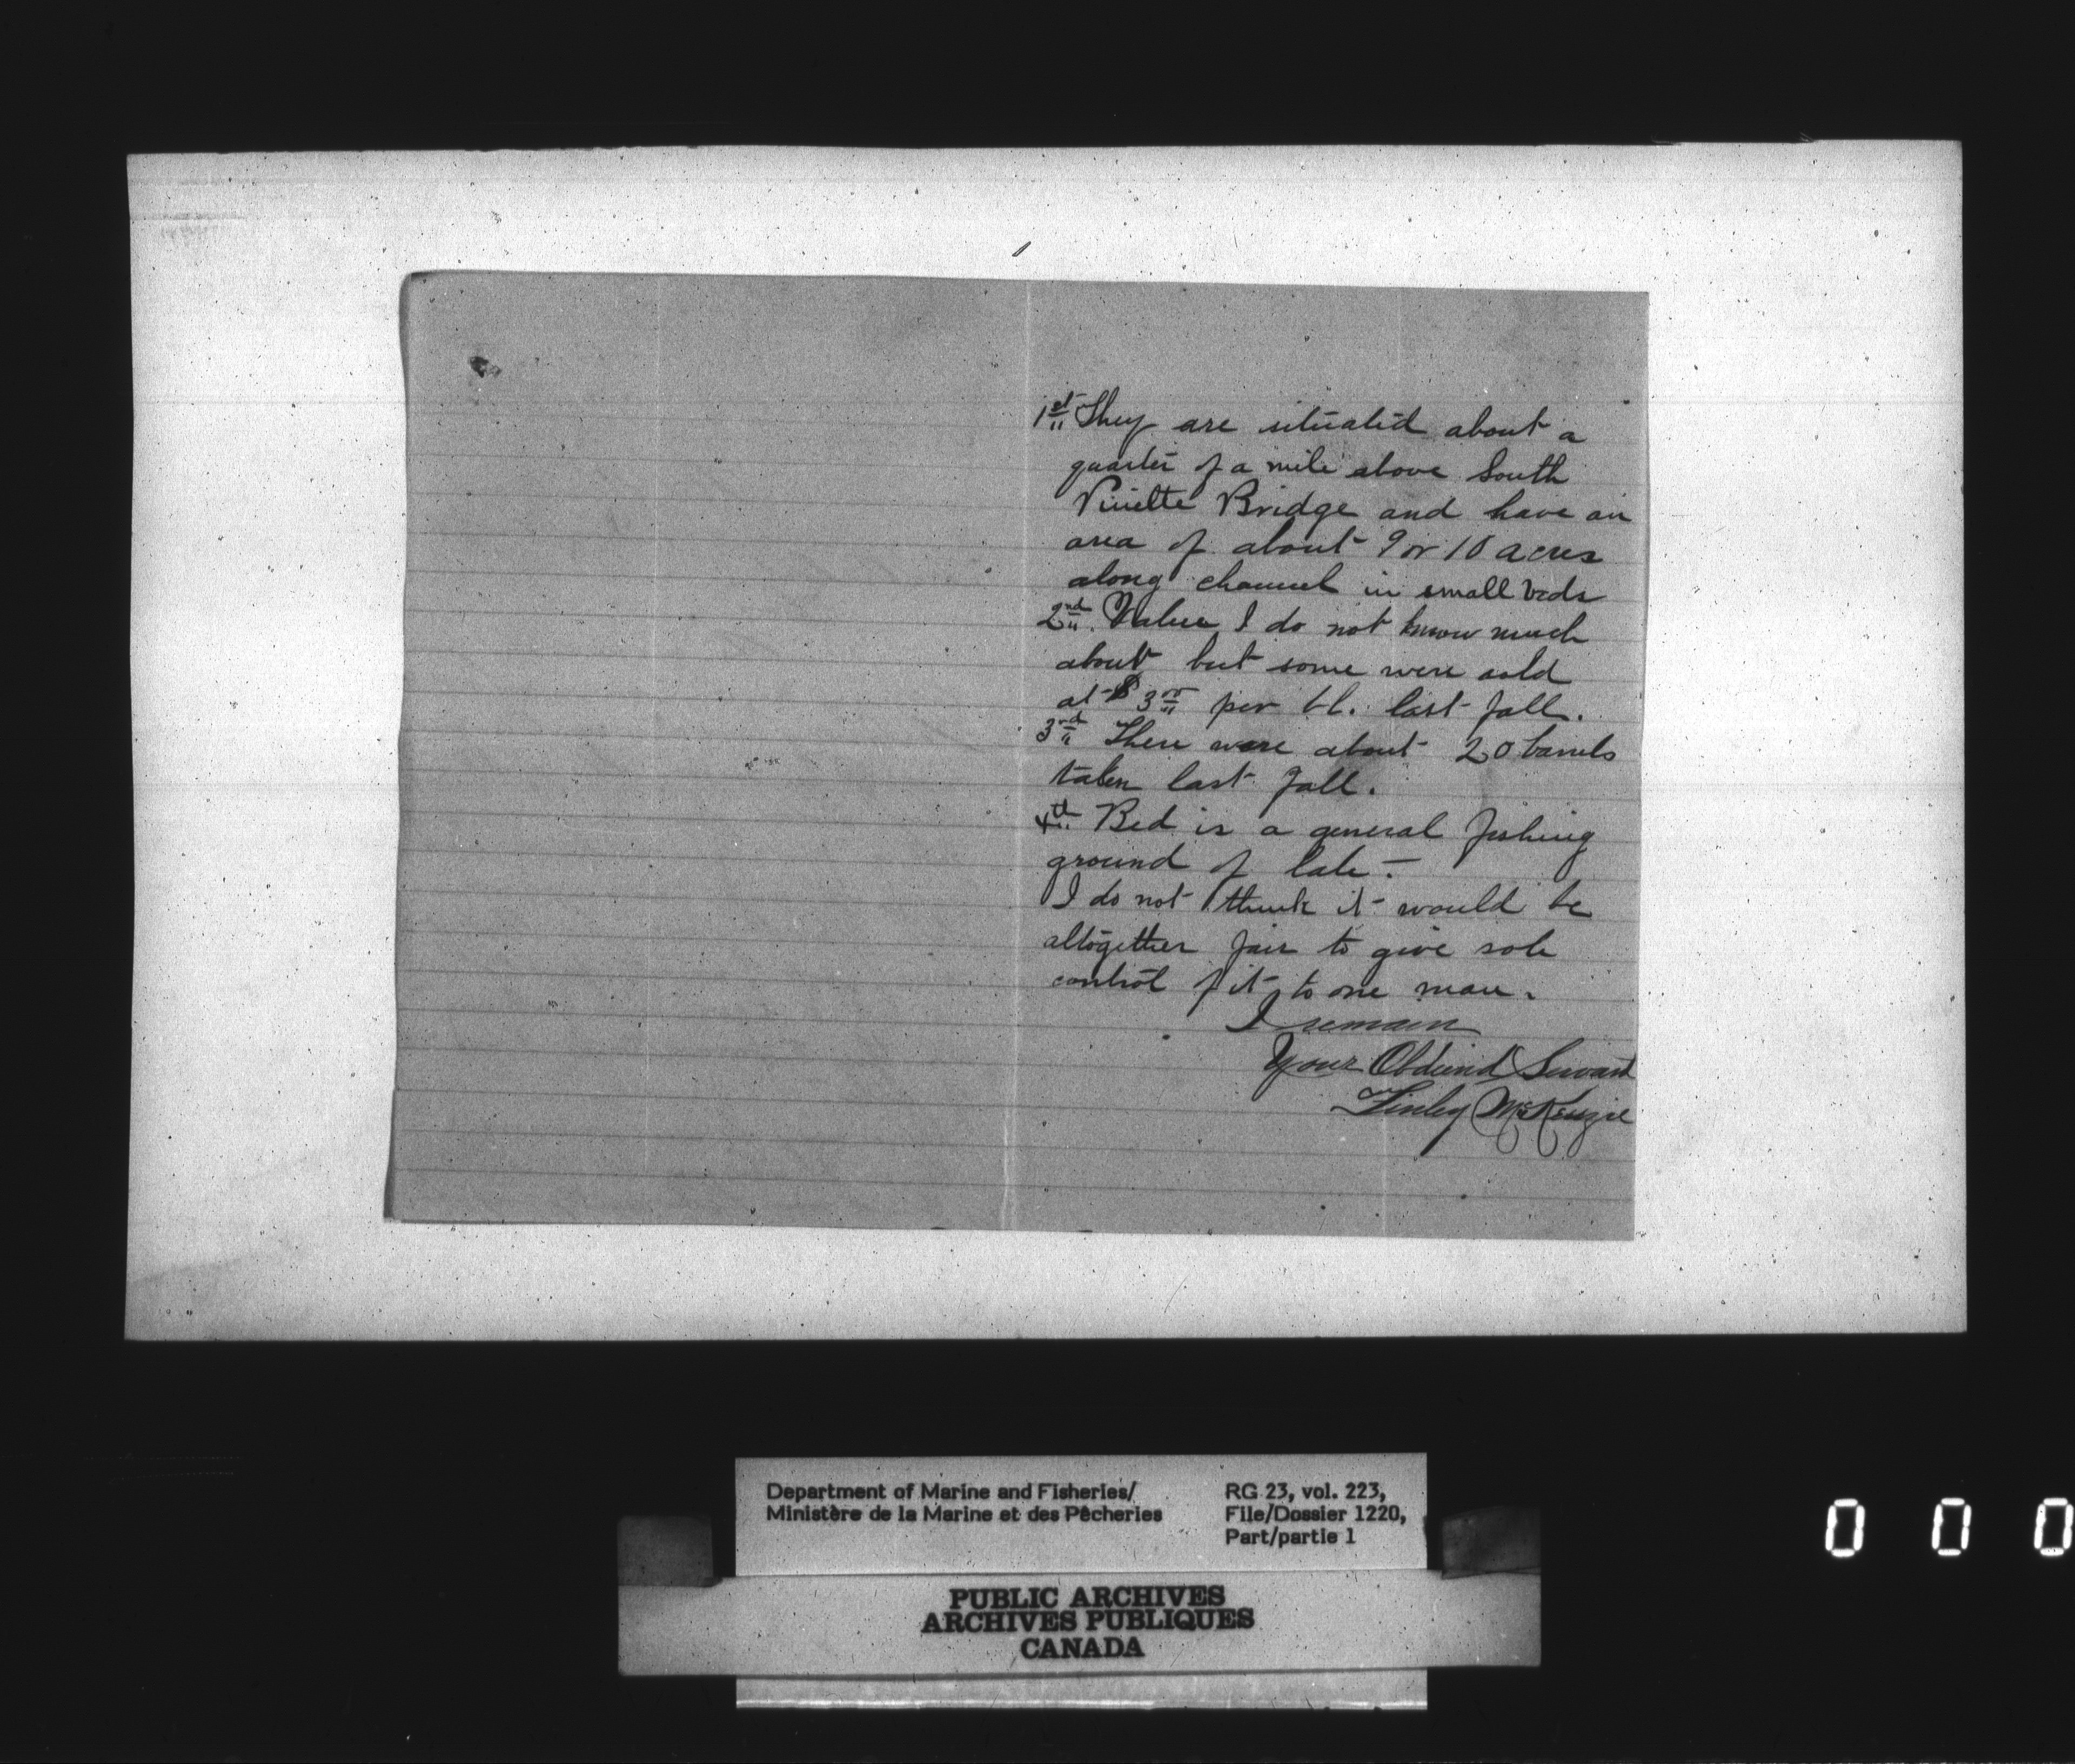 1st They are situated about a
quarter of a mile above South
Pinette Bridge and have an
area of about 9 or 10 acres
along channel in small beds
2nd. Value I do not know much
about but some were sold
at $3 00 per bl. last fall.
3rd There were about 20 barrels
taken last fall.
4th Bed is a general fishing
ground of late.
I do not think it would be
altogether fair to give sole
control of it to one man.
I remain
Your Obdeind Servant
Finley McKenzie
Department of Marine and Fisheries/
Ministère de la Marine et des Pêcheries
RG 23, vol. 223,
File/Dossier 1220,
Part/partie 1
PUBLIC ARCHIVES
ARCHIVES PUBLIQUES
CANADA
0 0 0